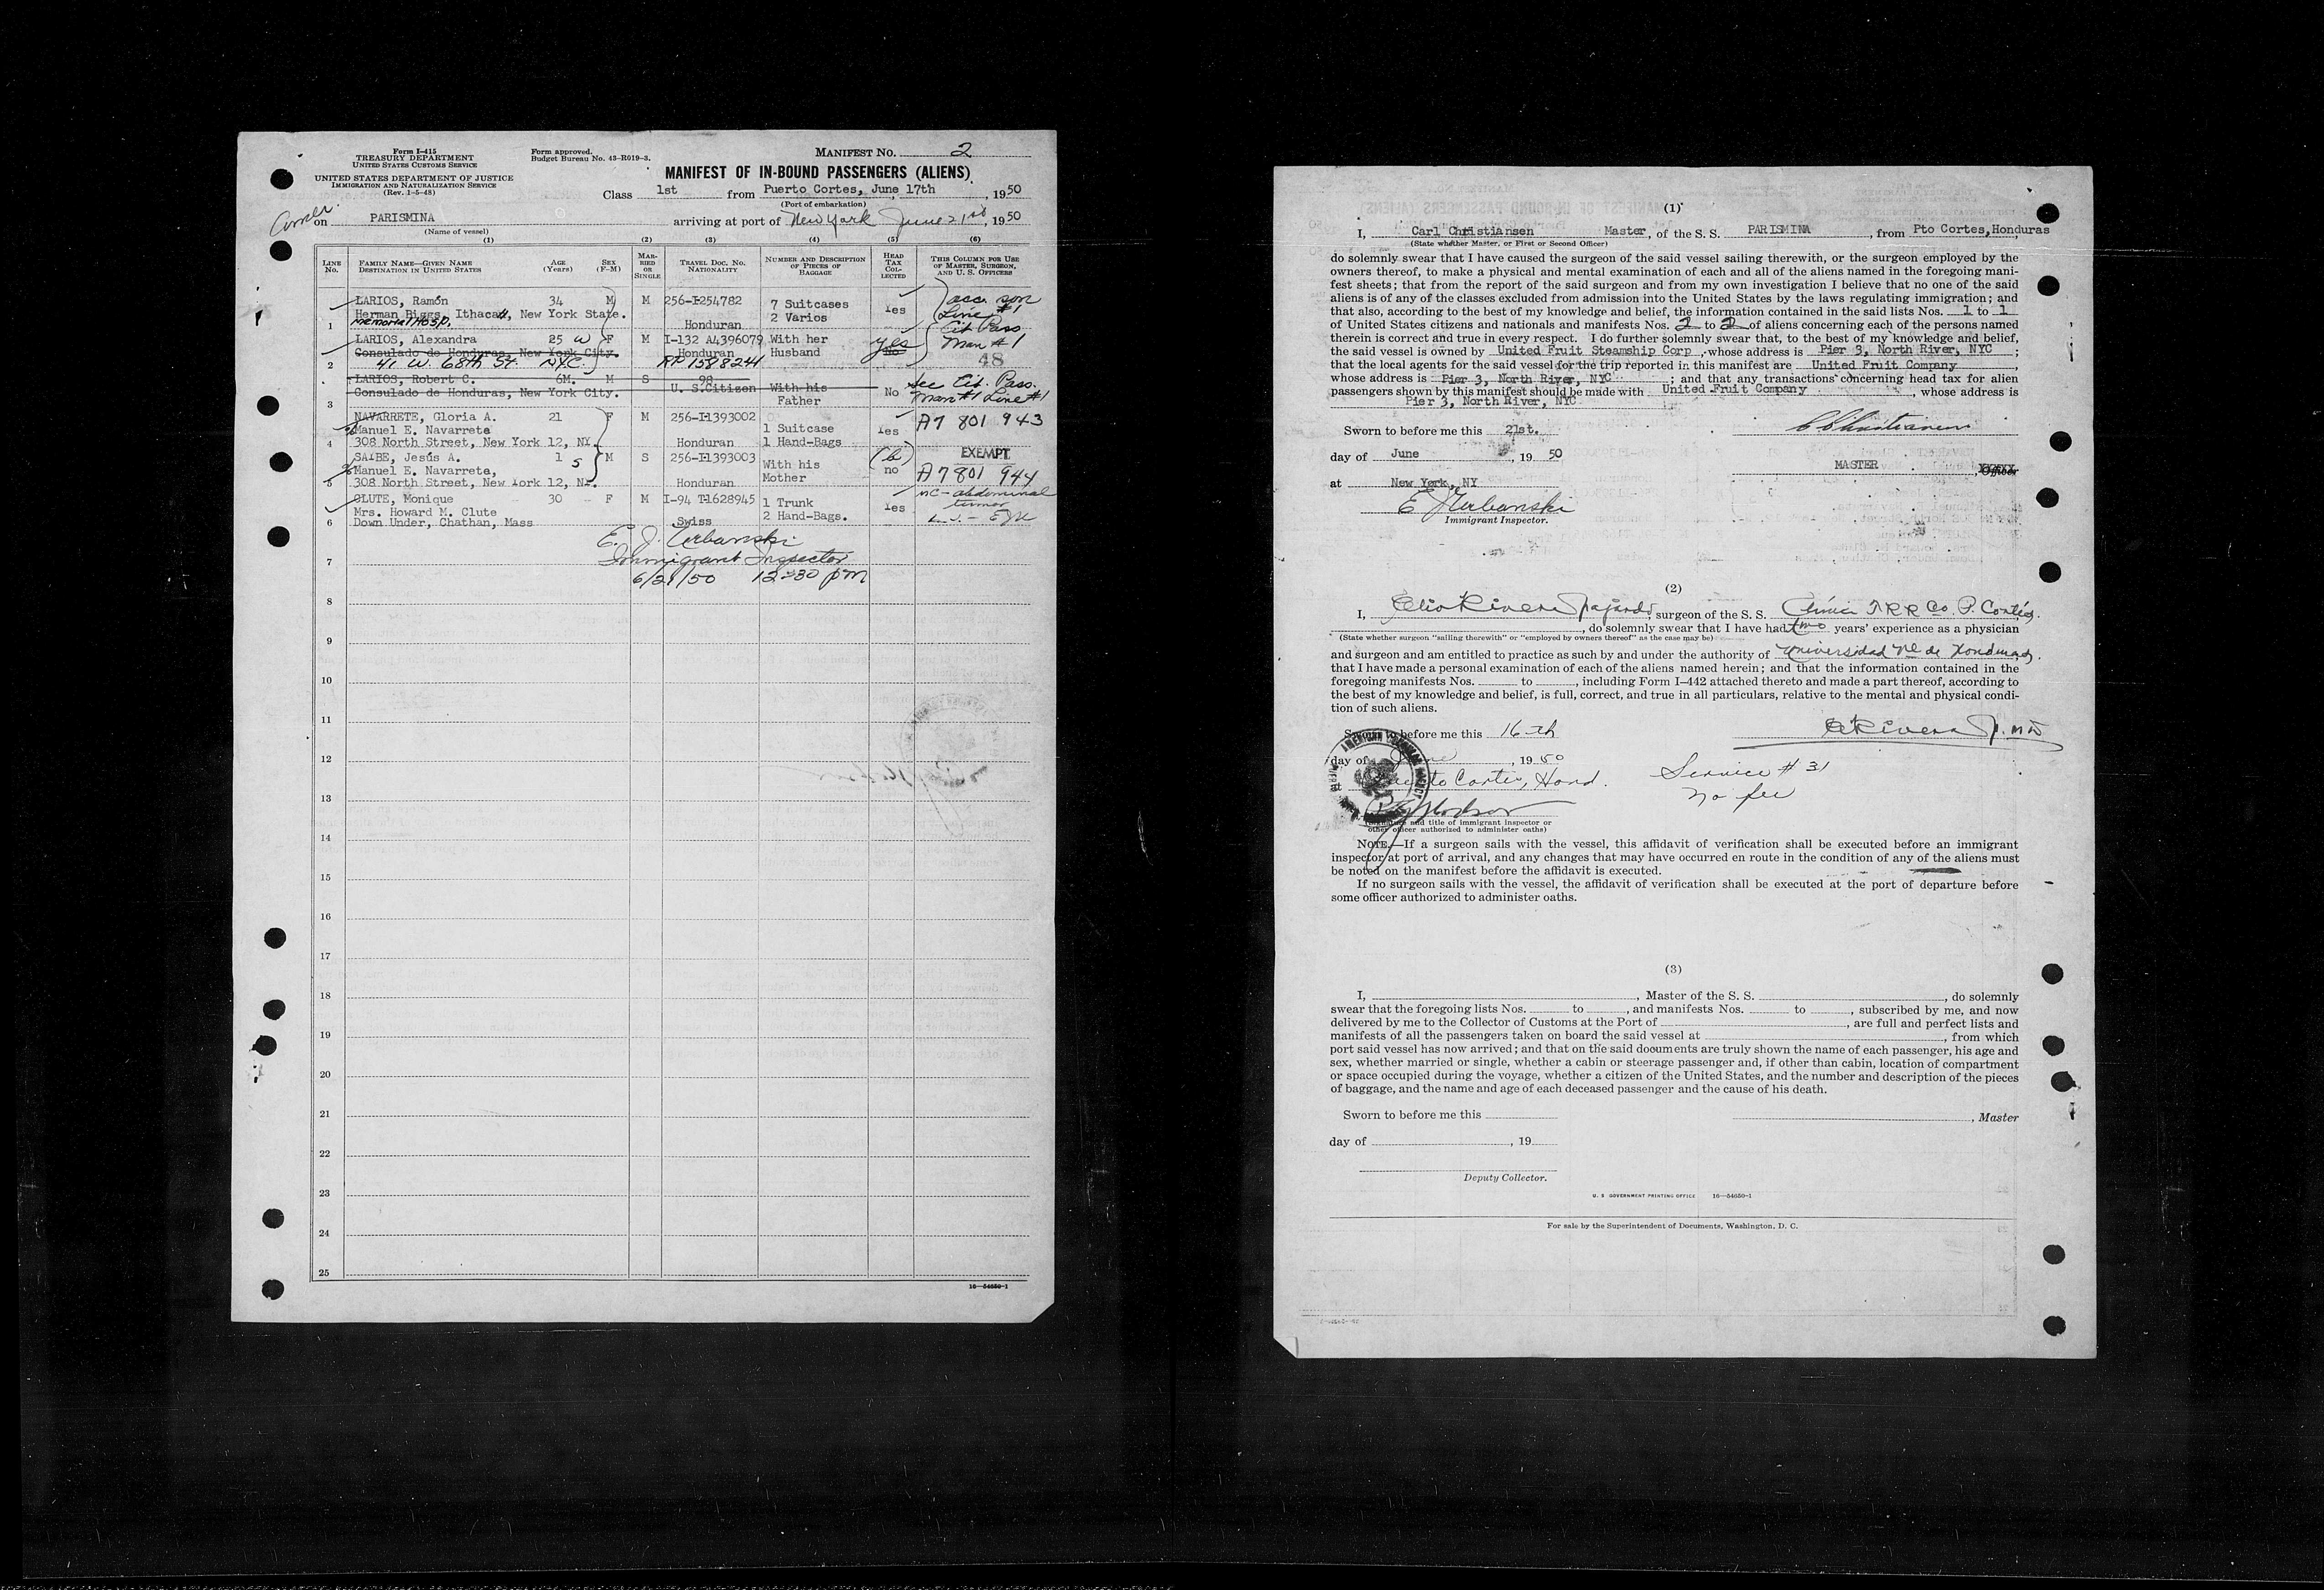 Form I-415
TREASURY DEPARTMENT
UNITED STATES CUSTOMS SERVICE
UNITED STATES DEPARTMENT OF JUSTICE
IMMIGRATION AND NATURALIZATION SERVICE
(Rev. 1-5-48)
Form approved.
Budget Bureau No. 43-R019-3.
MANIFEST NO. 2
MANIFEST OF IN-BOUND PASSENGERS (ALIENS)
Class 1st from Puerto Cortes, June 17th, 1950
(Port of embarkation)
on PARISMINA arriving at port of New York June 21st, 1950
(Name of vessel)
(1) (2) (3) (4) (5) (6)
LINE No. FAMILY NAME—GIVEN NAME DESTINATION IN UNITED STATES AGE (Years) SEX (F-M) MARRIED OR SINGLE TRAVEL DOC. NO. NATIONALITY NUMBER AND DESCRIPTION OF PIECES OF BAGGAGE HEAD TAX COLLECTED THIS COLUMN FOR USE OF MASTER, SURGEON, AND U. S. OFFICERS
LARIOS, Ramón 34 M M 256-I-254782 7 Suitcases Yes acc. son
Herman Biggs, Ithaca, New York State. 2 Varios Line #1
1 Memorial Hosp. Honduran Cit Pass
LARIOS, Alexandra 25 W F M I-132 A4396079 With her yes Man #1
Consulado de Honduras, New York City. Honduran Husband No 48
2 41 W. 68th St. NYC. RP 1588241
LARIOS, Robert C. 6M. M S 98 See Cit. Pass.
Consulado de Honduras, New York City. U. S. Citizen With his No Man #1 Line #1
3 Father
NAVARRETE, Gloria A. 21 F M 256-I-1393002 A7 801 943
% Manuel E. Navarrete 1 Suitcase Yes
4 308 North Street, New York 12, NY. Honduran 1 Hand-Bags
SAIBE, Jesús A. 1 S M S 256-I-1393003 (b) EXEMPT
% Manuel E. Navarrete, With his no A7 801 944
308 North Street, New York 12, NY. Honduran Mother
CLUTE, Monique 30 F M I-94 T-1628945 1 Trunk Yes MC - abdominal
Mrs. Howard M. Clute 2 Hand-Bags. tumor
6 Down Under, Chathan, Mass Swiss
E. J. Urbanski
7 Immigrant Inspector
6/21/50 12:30 pm
8
9
10
11
12
13
14
15
16
17
18
19
20
21
22
23
24
25
16—54650-1
(1)
I, Carl Christiansen Master, of the S. S. PARISMINA, from Pto Cortes, Honduras,
(State whether Master, or First or Second Officer)
do solemnly swear that I have caused the surgeon of the said vessel sailing therewith, or the surgeon employed by the
owners thereof, to make a physical and mental examination of each and all of the aliens named in the foregoing mani-
fest sheets; that from the report of the said surgeon and from my own investigation I believe that no one of the said
aliens is of any of the classes excluded from admission into the United States by the laws regulating immigration; and
that also, according to the best of my knowledge and belief, the information contained in the said lists Nos. 1 to 1
of United States citizens and nationals and manifests Nos. 2 to 2 of aliens concerning each of the persons named
therein is correct and true in every respect. I do further solemnly swear that, to the best of my knowledge and belief,
the said vessel is owned by United Fruit Steamship Corp, whose address is Pier 3, North River, NYC ;
that the local agents for the said vessel for the trip reported in this manifest are United Fruit Company,
whose address is Pier 3, North River, NYC ; and that any transactions concerning head tax for alien
passengers shown by this manifest should be made with United Fruit Company, whose address is
Pier 3, North River, NYC
Sworn to before me this 21st. C Christiansen
day of June, 1950
MASTER Officer
at New York, NY
E J Urbanski
Immigrant Inspector.
(2)
I, Elio Rivera Fajardo, surgeon of the S. S. Clinica T. R R Co. P. Cortés.
, do solemnly swear that I have had two years' experience as a physician
(State whether surgeon "sailing therewith" or "employed by owners thereof" as the case may be)
and surgeon and am entitled to practice as such by and under the authority of Universidad Nl de Honduras.
that I have made a personal examination of each of the aliens named herein; and that the information contained in the
foregoing manifests Nos. to , including Form I-442 attached thereto and made a part thereof, according to
the best of my knowledge and belief, is full, correct, and true in all particulars, relative to the mental and physical condi-
tion of such aliens.
Sworn to before me this 16th
day of June, 1950
at Puerto Cortes, Hond. Service # 31
no fee
(Signature and title of immigrant inspector or
other officer authorized to administer oaths)
NOTE.—If a surgeon sails with the vessel, this affidavit of verification shall be executed before an immigrant
inspector at port of arrival, and any changes that may have occurred en route in the condition of any of the aliens must
be noted on the manifest before the affidavit is executed.
If no surgeon sails with the vessel, the affidavit of verification shall be executed at the port of departure before
some officer authorized to administer oaths.
(3)
I, , Master of the S. S. , do solemnly
swear that the foregoing lists Nos. to , and manifests Nos. to , subscribed by me, and now
delivered by me to the Collector of Customs at the Port of , are full and perfect lists and
manifests of all the passengers taken on board the said vessel at , from which
port said vessel has now arrived; and that on the said documents are truly shown the name of each passenger, his age and
sex, whether married or single, whether a cabin or steerage passenger and, if other than cabin, location of compartment
or space occupied during the voyage, whether a citizen of the United States, and the number and description of the pieces
of baggage, and the name and age of each deceased passenger and the cause of his death.
Sworn to before me this , Master
day of , 19
Deputy Collector.
U. S GOVERNMENT PRINTING OFFICE 16—54650-1
For sale by the Superintendent of Documents, Washington, D. C.